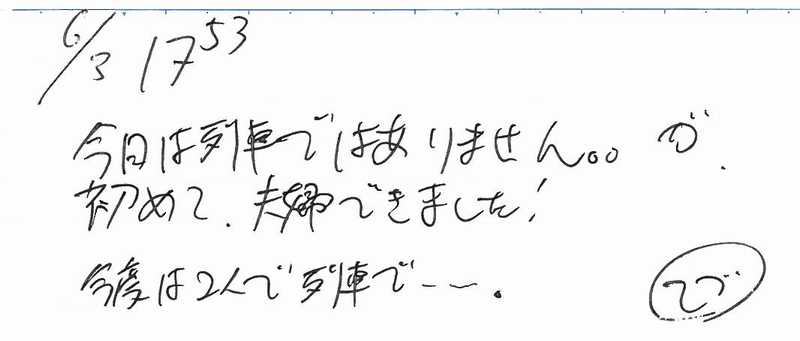 6/3 17 53
今日は列車ではありません。。が、
初めて、夫婦できました!
今度は2人で列車で――.
てづ